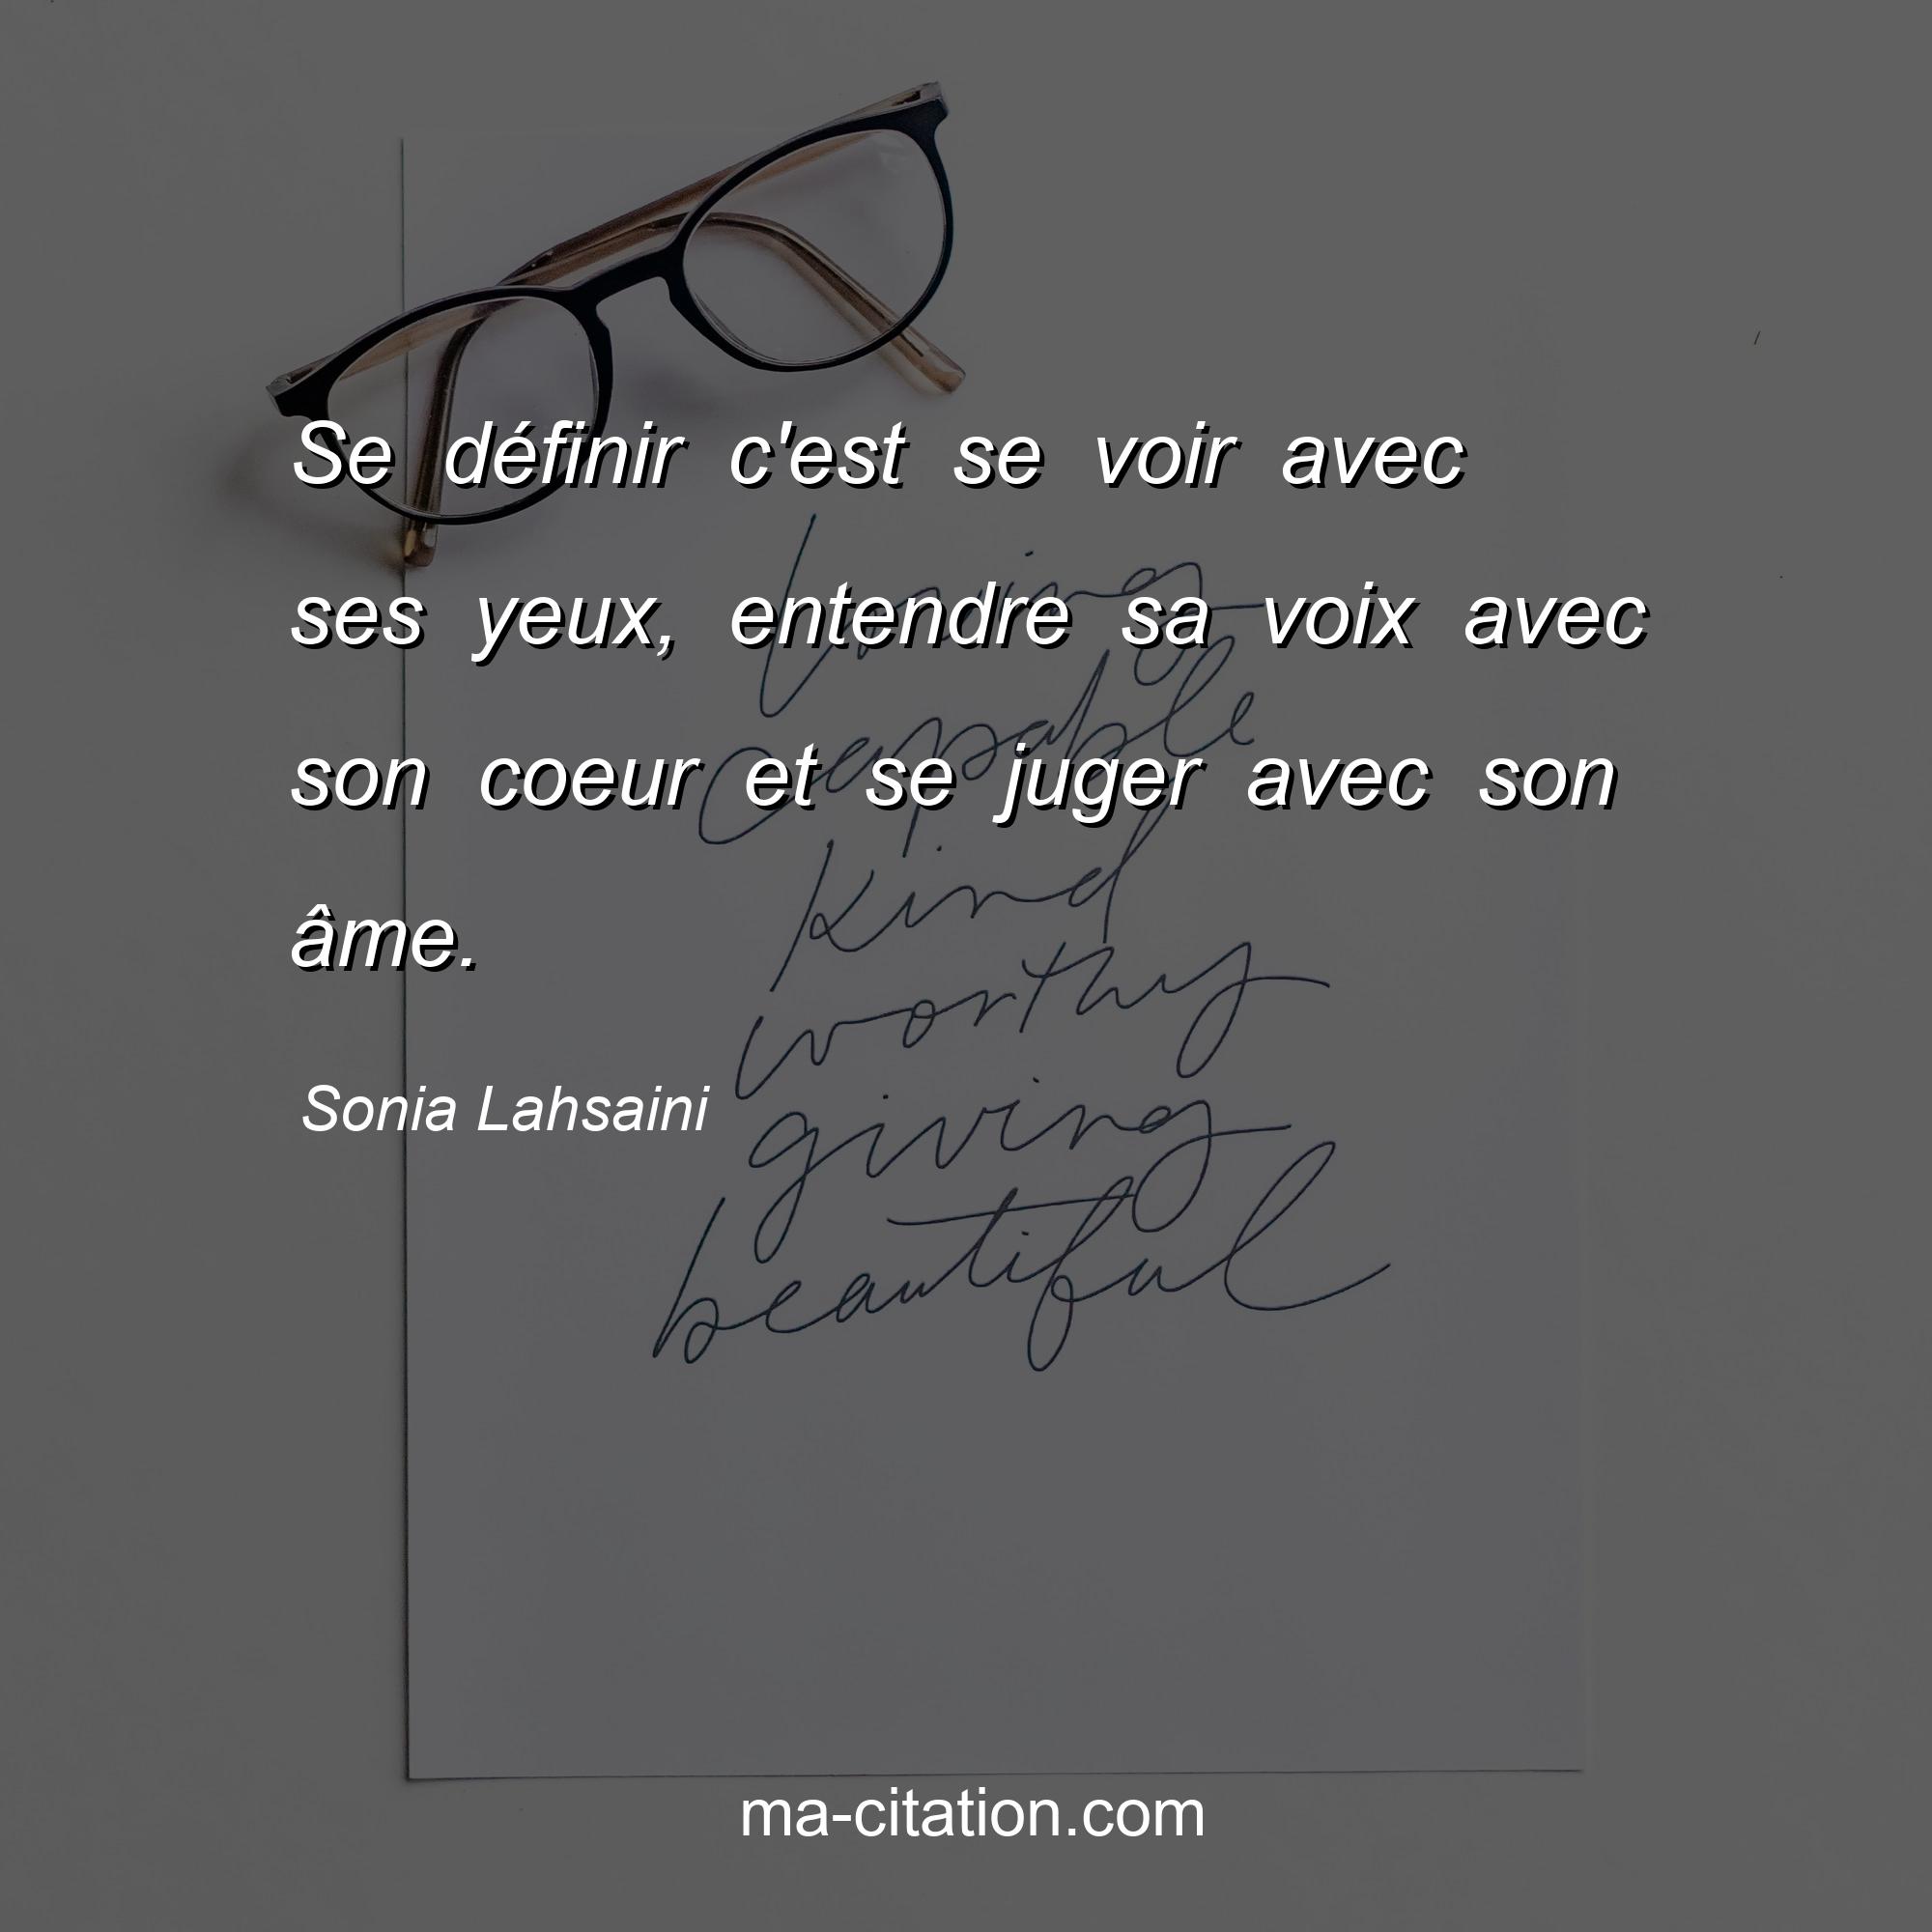 Se définir c'est se voir avec
ses yeux, entendre sa voix avec
son coeur et se juger avec son
âme.
Sonia Lahsaini
Loving
capable
kind
worthy
giving
beautiful
ma-citation.com